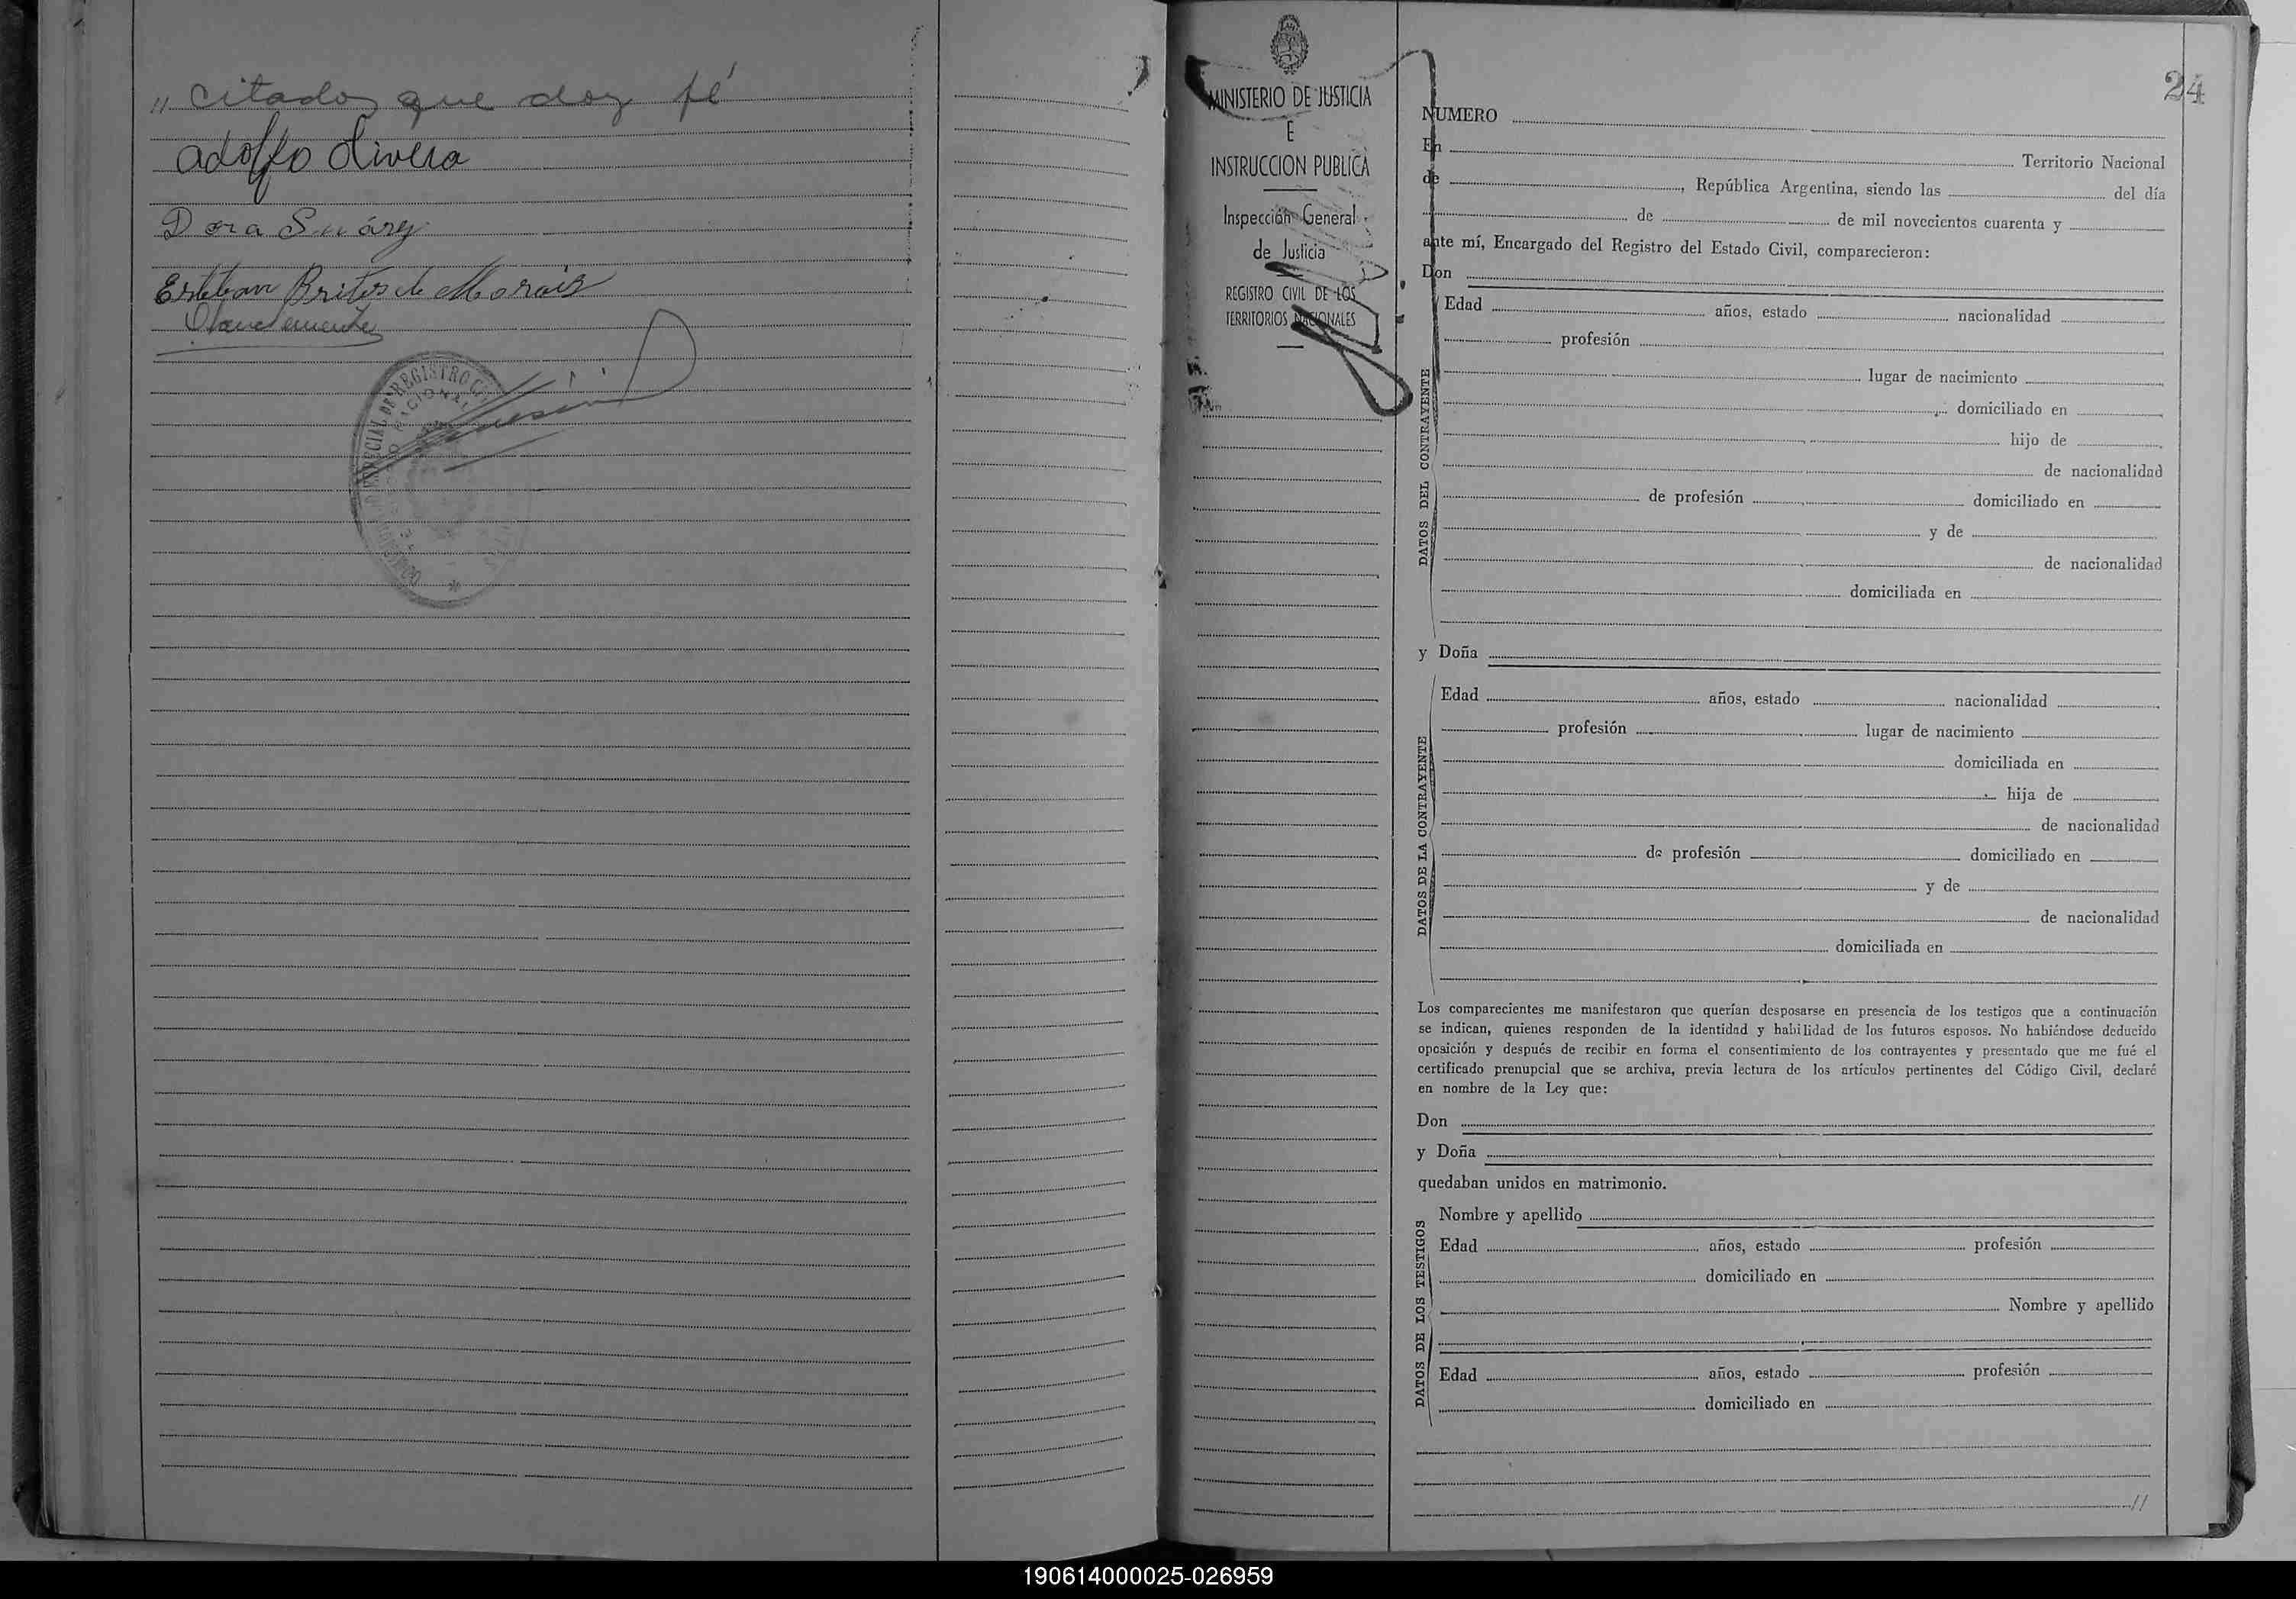 " citados que doy fé
Adolfo Olivera
Dora Suárez
Esteban Brites de Morais
REGISTRO
NACIONAL
24
MINISTERIO DE JUSTICIA
E
INSTRUCCION PUBLICA
Inspección General
de Justicia
REGISTRO CIVIL DE LOS
TERRITORIOS NACIONALES
NUMERO
En Territorio Nacional
de , República Argentina, siendo las del día
de de mil novecientos cuarenta y
ante mí, Encargado del Registro del Estado Civil, comparecieron:
Don
DATOS DEL CONTRAYENTE
Edad años, estado nacionalidad
profesión
lugar de nacimiento
domiciliado en
hijo de
de nacionalidad
de profesión domiciliado en
y de
de nacionalidad
domiciliada en
y Doña
DATOS DE LA CONTRAYENTE
Edad años, estado nacionalidad
profesión lugar de nacimiento
domiciliada en
hija de
de nacionalidad
de profesión domiciliado en
y de
de nacionalidad
domiciliada en
Los comparecientes me manifestaron que querían desposarse en presencia de los testigos que a continuación
se indican, quienes responden de la identidad y habilidad de los futuros esposos. No habiéndose deducido
oposición y después de recibir en forma el consentimiento de los contrayentes y presentado que me fué el
certificado prenupcial que se archiva, previa lectura de los artículos pertinentes del Código Civil, declaré
en nombre de la Ley que:
Don
y Doña
quedaban unidos en matrimonio.
DATOS DE LOS TESTIGOS
Nombre y apellido
Edad años, estado profesión
domiciliado en
Nombre y apellido
Edad años, estado profesión
domiciliado en
//
190614000025-026959